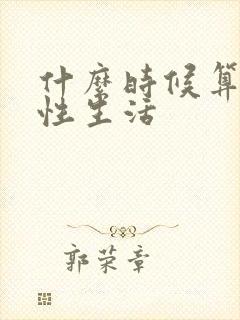 什麼時候算
性生活
郭荣章